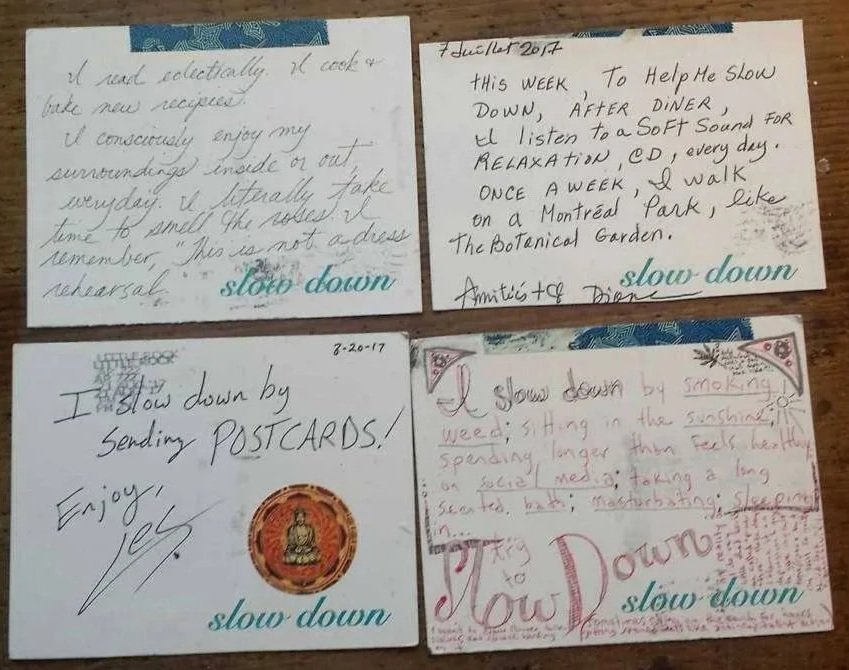 I read eclectically. I cook &
bake new recipies.
I consciously enjoy my
surroundings inside or out,
everyday. I literally take
time to smell the roses. I
remember, "This is not a dress
rehearsal."
slow down
7 Juillet 2017
THIS WEEK, To Help Me Slow
DOWN, AFTER DINER,
I listen to a SOFT Sound FOR
RELAXATION, CD, every day.
ONCE A WEEK, I walk
on a Montréal Park, like
The Botanical Garden.
slow down
Amitiés
Diane
LITTLE ROCK
8-20-17
I slow down by
Sending POSTCARDS!
Enjoy,
Les
slow down
I slow down by smoking
weed; sitting in the sunshine;
spending longer than feels healthy
on social media; taking a long
scented bath; masturbating; sleeping
in...
try
to
Slow Down
slow down